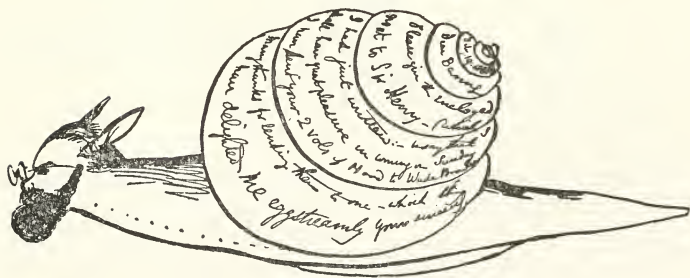 Dear Baring
Please give the encloged
noat to Sir Henry — (which
I had just written:— & say that I
shall have great pleasure in coming on Sunday
I have sent your 2 vols of Hood to Wade Brown
Many thanks for lending them to me — which they
have delighted me eggstreamly Yours sincerely